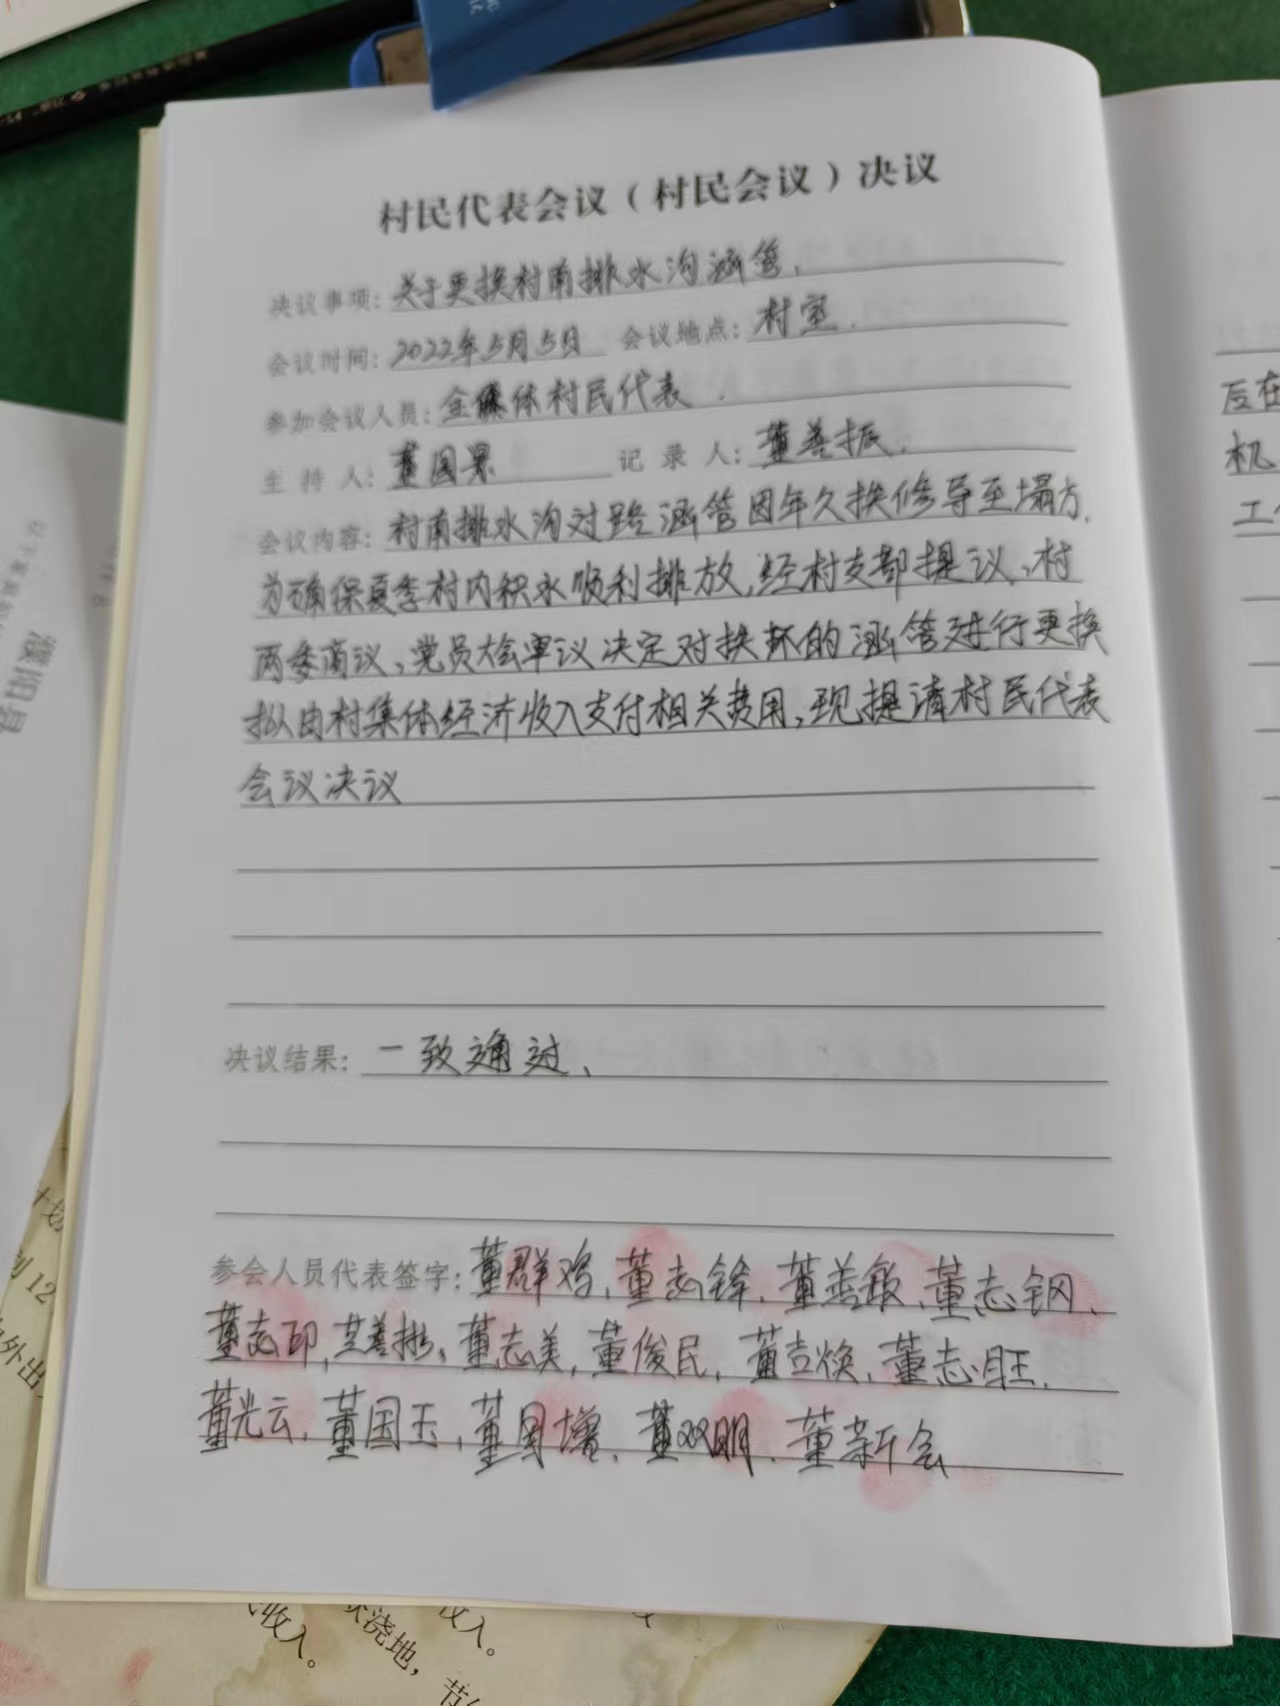 村民代表会议（村民会议）决议
决议事项：关于更换村南排水沟涵管.
会议时间：2022年5月5日 会议地点：村室.
参加会议人员：全体村民代表.
主持人：董国景 记录人：董善振.
会议内容：村南排水沟对路涵管因年久换修导至塌方.
为确保夏季村内积水顺利排放,经村支部提议、村
两委商议、党员大会审议决定对换坏的涵管进行更换
拟由村集体经济收入支付相关费用,现提请村民代表
会议决议
决议结果：一致通过、
参会人员代表签字：董群鸡,董志锋,董善敏,董志钢、
董志印,董志美,董俊民,董志旺,
董光云,董国玉,董国增,董双明,董新会
后在
机
工作
濮阳县
计划
到12
外出
收入。
收入。
浇地，节